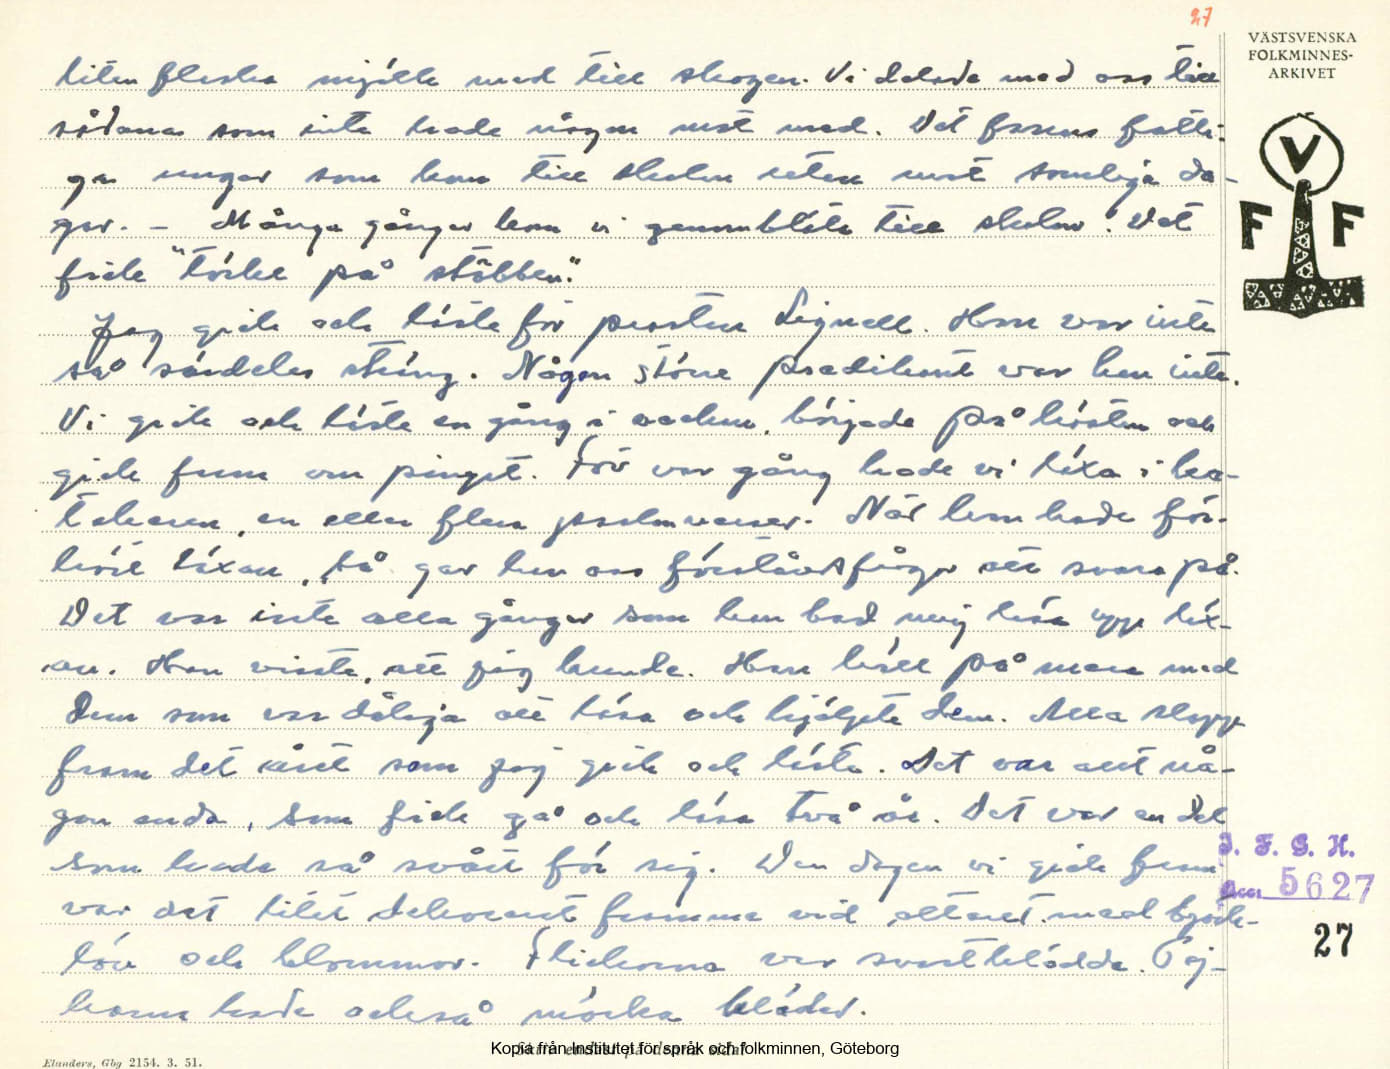 27
VÄSTSVENSKA
FOLKMINNES-
ARKIVET
V
F F
liten flaska mjölk med till skogen. Vi delade med oss till
sådana som inte hade någon mat med. Det fanns fatti-
ga ungar som kom till skolan utan mat somliga da-
gar. – Många gånger kom vi genomblöta till skolan. Det
fick "torka på stôbben".
Jag gick och läste för prosten Signell. Han var inte
så särdeles sträng. Någon större predikant var han inte.
Vi gick och läste en gång i veckan, började på hösten och
gick fram om pingst. För var gång hade vi läxa i ka-
tekesen, en eller flera psalmverser. När han hade för-
hört läxan, så gav han oss förståndsfrågor att svara på.
Det var inte alla gånger som han bad mig läsa upp läx-
an. Han visste, att jag kunde. Han höll på mera med
dem som var dåliga att läsa och hjälpte dem. Alla slapp
fram det året som jag gick och läste. Det var att nå-
gon enda, som fick gå och läsa två år. Det var en del
som hade så svårt för sig. Den dagen vi gick fram
var det litet dekorerat framme vid altaret med björk-
löv och blommor. Flickorna var svartklädda. Poj-
karna hade också mörka kläder.
I. F. G. H.
Acc. 5627
27
Elanders, Gbg 2154. 3. 51.
Kopia från Institutet för språk och folkminnen, Göteborg